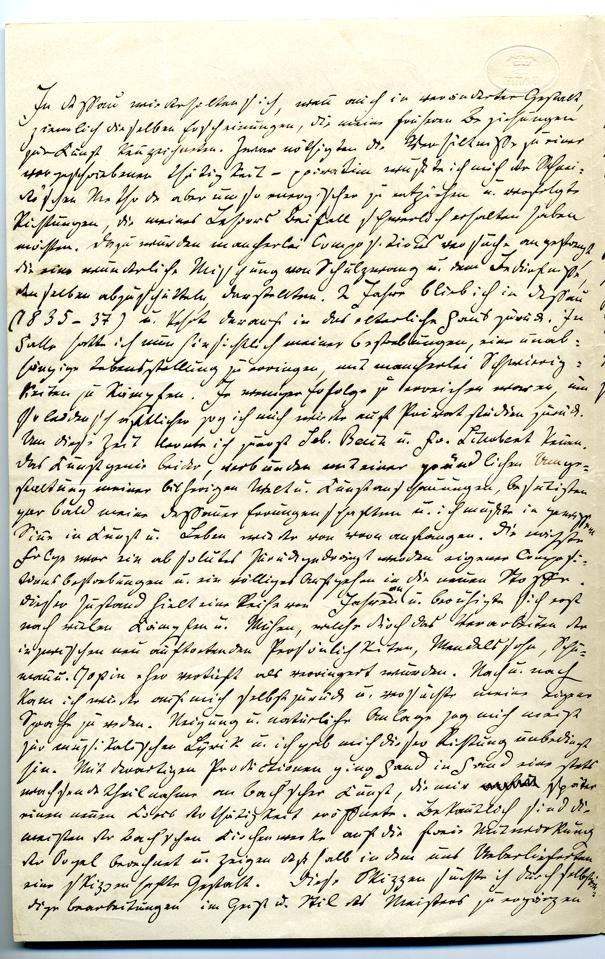 In Dessau wiederholten sich, wenn auch in veränderter Gestalt,
ziemlich dieselben Erscheinungen, die meine früheren Beziehungen
zur Kunst kennzeichneten. Zwar nöthigten die Verhältnisse zu einer
vorgeschriebenen Thätigkeit – privatim wußte ich mich der Schnei-
der'schen Methode aber um so energischer zu entziehen u. verfolgte
Richtungen, die meines Lehrers Beifall schwerlich erhalten haben
möchten. Dazu wurden mancherlei Compositionsversuche angestrengt
die eine wunderliche Mischung von Schulzwang u. dem Bedürfniß
denselben abzuschütteln, darstellten. 2 Jahre blieb ich in Dessau
(1835–37) u. kehrte darauf in das elterliche Haus zurück. In
Halle hatte ich nun hinsichtlich meiner Bestrebungen, eine unab-
hängige Lebensstellung zu erringen, mit mancherlei Schwierig-
keiten zu kämpfen. Je weniger Erfolge zu erreichen waren, um
so leidenschaftlicher zog ich mich wieder auf Privatstudien zurück.
Um diese Zeit lernte ich zuerst Seb. Bach u. Fr. Schubert kennen.
Das Kunstgenie beider, verbunden mit einer gründlichen Umge-
staltung meiner bisherigen Welt u. Kunstanschauungen, beseitigten
gar bald meine Dessauer Errungenschaften u. ich mußte in gewissem
Sinne in Kunst u. Leben wieder von vorn anfangen. Die nächste
Folge war ein absolutes Zurückgedrängt werden eigener Composi-
tionsbestrebungen u. ein williges Aufgehen in die neuen Stoffe.
Dieser Zustand hielt eine Reihe von Jahren an u. beruhigte sich erst
nach vielen Kämpfen u. Mühen, welche durch das Verarbeiten der
inzwischen neu auftretenden Persönlichkeiten, Mendelssohn, Schu-
mann u. Chopin eher vertieft als verringert wurden. Nach u. nach
kam ich wieder auf mich selbst zurück u. versuchte meine eigne
Sprache zu reden. Neigung u. natürliche Anlage zog mich meist
zur musikalischen Lyrik u. ich gab mich dieser Richtung unbedingt
hin. Mit derartigen Productionen ging Hand in Hand eine stets
wachsende Theilnahme an Bach'scher Kunst, die mir später
einen neuen Kreis der Thätigkeit eröffnete. Bekanntlich sind die
meisten der Bach'schen Kirchenwerke auf die freie Mitwirkung
der Orgel berechnet u. zeigen deßhalb in dem uns Ueberlieferten
eine skizzenhafte Gestalt. Diese Skizzen suchte ich durch selbstän-
dige Bearbeitungen im Geist u. Stil des Meisters zu ergänzen